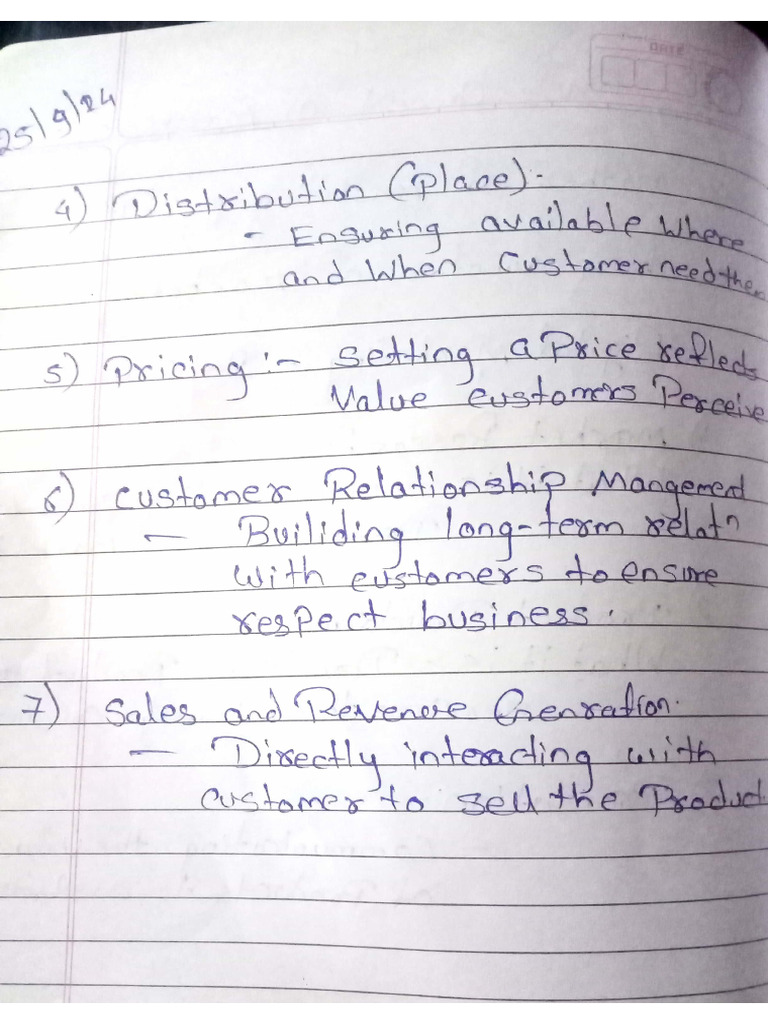 DATE
25/9/24
4) Distribution (place):-
- Ensuring available where
and when customer need the
5) Pricing :- setting a Price reflects
Value customers Perceive
6) customer Relationship Mangement
- Builiding long-term relatn
with customers to ensure
respect business.
7) Sales and Revenoe Genration.
- Directly interacting with
customer to sell the Product